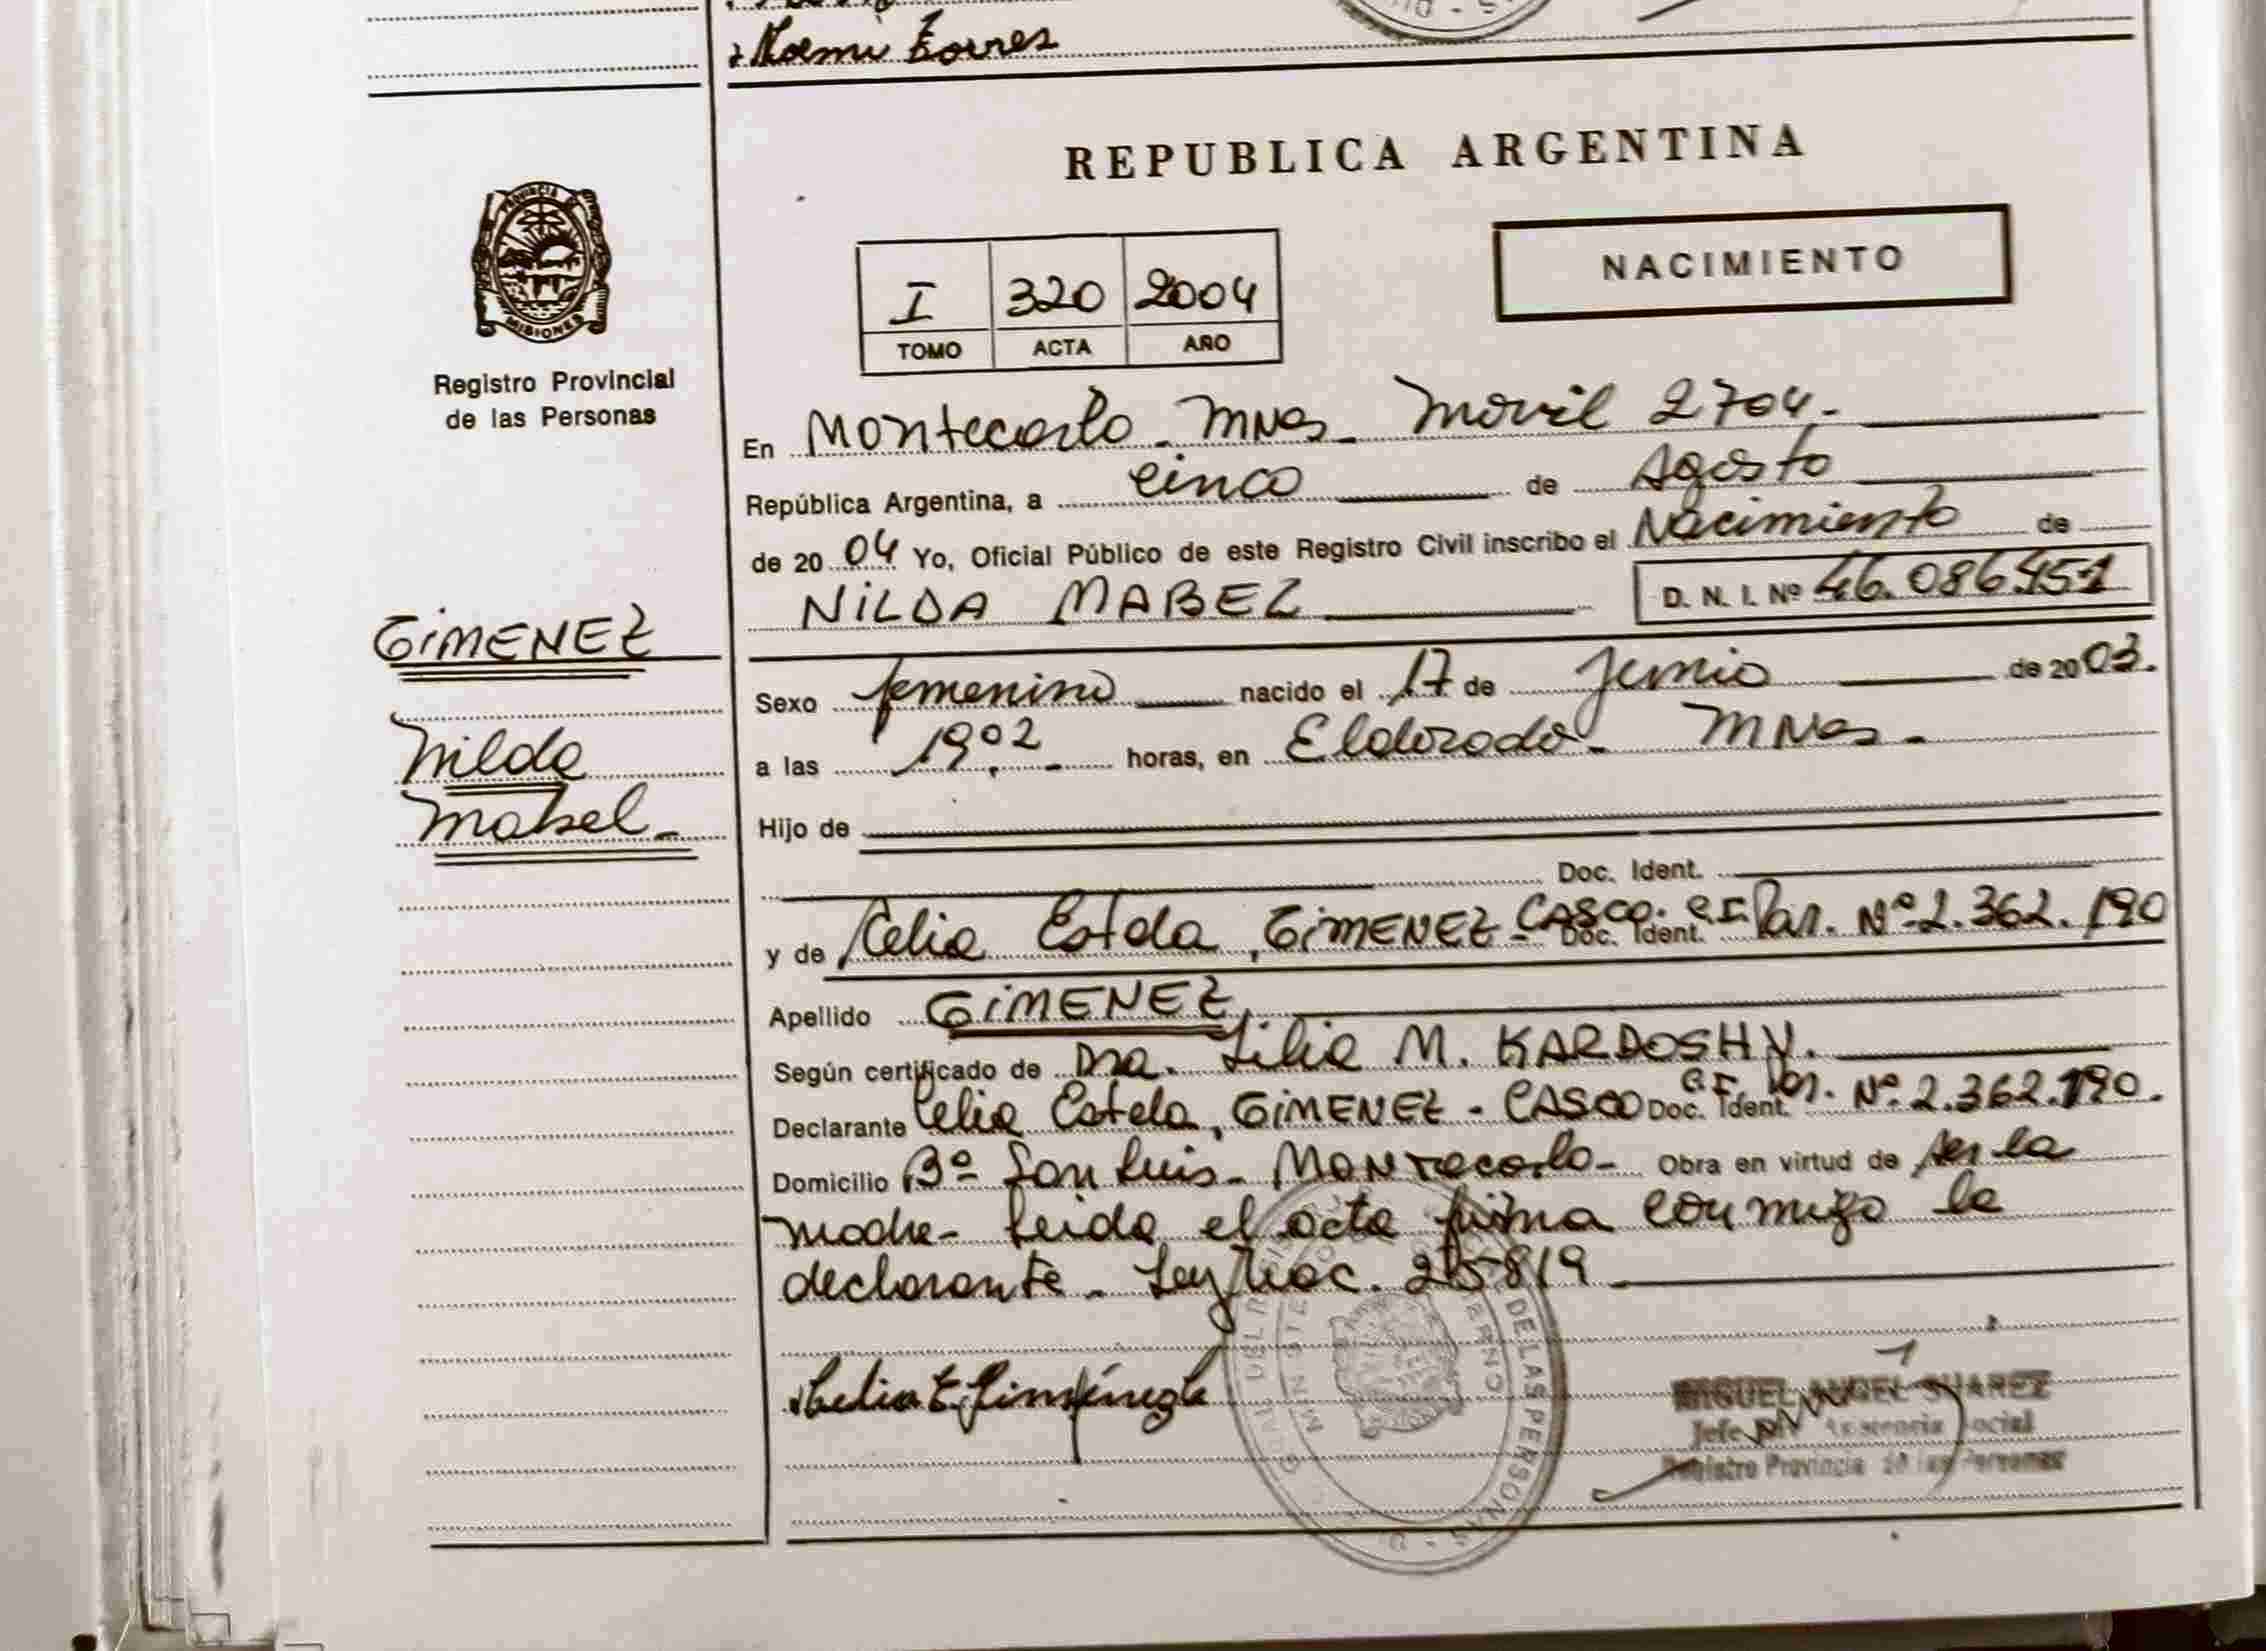 Noemi Torres
PROVINCIA DE
MISIONES
Registro Provincial
de las Personas
GiMENEZ
Nilda
Mabel -
REPUBLICA ARGENTINA
I 320 2004
TOMO ACTA AÑO
NACIMIENTO
En Montecarlo - MNes - Movil 2704 -
República Argentina, a cinco de Agosto
de 2004 Yo, Oficial Público de este Registro Civil inscribo el Nacimiento de
NiLDA MABEL D. N. I. Nº 46.086.451
Sexo femenino nacido el 17 de Junio de 2003.
a las 19,02 - horas, en Eldorado - MNes -
Hijo de
Doc. Ident.
y de Celia Estela, GiMENEZ - CASCO. C.I. Doc. Ident. Par. Nº 2.362.190
Apellido GiMENEZ
Según certificado de Dra. Lilia M. KARDOSHY.
Declarante Celia Estela, GiMENEZ - CASCO Doc. Ident. C.I. Par. Nº 2.362.190.
Domicilio Bº San Luis - Montecarlo - Obra en virtud de ser la
madre - Leida el acta firma conmigo la
declarante - Ley Nac. 25819
Celia E. Giménez
DE LAS PERSONAS
MIGUEL ANGEL SUAREZ
Jefe Asistencia Social
Registro Provincial de las Personas